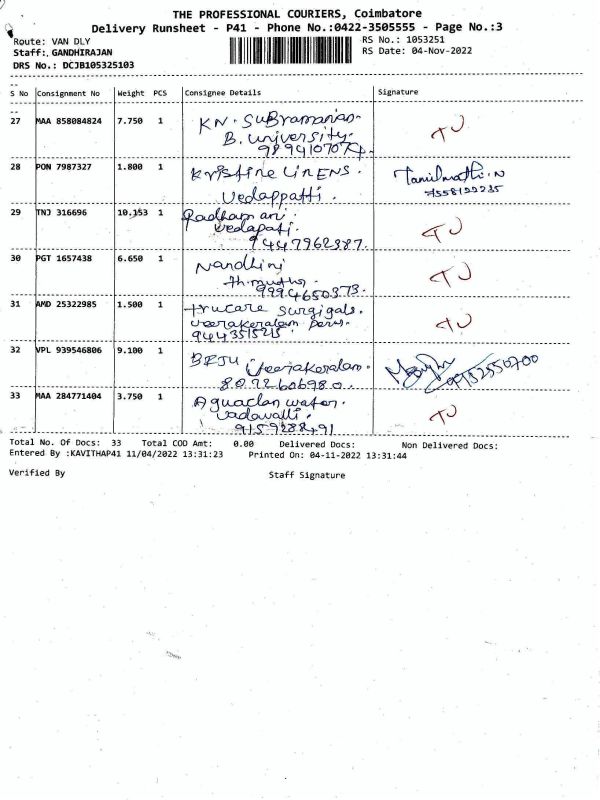 THE PROFESSIONAL COURIERS, Coimbatore
Delivery Runsheet - P41 - Phone No.:0422-3505555 - Page No.:3
Route: VAN DLY
RS No.: 1053251
Staff:.GANDHIRAJAN
RS Date: 04-Nov-2022
DRS No.: DCJB105325103
S No Consignment No Weight PCS Consignee Details Signature
27 MAA 858084824 7.750 1 KN. SuBramanian.
B. university.
28 PON 7987327 1.800 1 Kristine LinENS.
Vedappatti.
Tamilmathi.N
7558122235
29 TNJ 316696 10.153 1 Radhamani.
vedapati.
9447962387.
30 PGT 1657438 6.650 1 Nandhini
9994650373.
31 AMD 25322985 1.500 1 trucare surgigals.
veerakeralam
32 VPL 939546806 9.100 1 BEJU Veerakeralam.
8072606980.
33 MAA 284771404 3.750 1 Aquaclan water.
vadavalli.
Total No. Of Docs: 33 Total COD Amt: 0.00 Delivered Docs: Non Delivered Docs:
Entered By :KAVITHAP41 11/04/2022 13:31:23 Printed On: 04-11-2022 13:31:44
Verified By Staff Signature